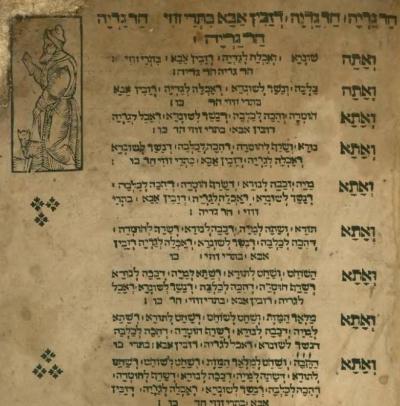 חד גדיה, חד גדיה, דזבין אבא בתרי זוזי חד גדיה
חד גדיה:
ואתה שונרא, ואכלה לגדיה, דזבין אבא, בתרי זוזי,
חד גדיה חד גדיה:
ואתה כלבה, ונשך לשונרא, דאכלה לגדיה, דזבין אבא
בתרי זוזי חד כו:
ואתא חוטרה, והכה לכלבה, דנשך לשונרא, דאכל לגדיה
דזבין אבא, בתרי זוזי חד כו:
ואתא נורא, ושרף לחוטרה, דהכה לכלבה, דנשך לשונרא
דאכלה לגדיה, דזבין אבא, בתרי זוזי חד כו:
ואתא מיה, וכבה לנורא, דשרף חוטרה, דהכה לכלבה,
דנשך לשונרא, דאכלה לגדיה, דזבין אבא, בתרי
זוזי, חד גדיה:
ואתא תורא, ושתה למיה, דכבה לנורא, דשרף לחוטרה,
דהכה לכלבה, דנשך לשונרא, דאכלה לגדיה דזבין
אבא, בתרי זוזי חד כו:
ואתא השוחט, ושחט לתורא, דשתא למיה, דכבה לנורא
דשרף חוטרה, דהכה לכלבה, דנשך לשונרא, דאכל
לגדיה, דזבין אבא, בתרי זוזי חד כו:
ואתא מלאך המות, ושחט לשוחט, דשחט לתורא, דשתא
למיה, דכבה לנורא, דשרף חוטרה, דהכה לכלבה
דנשך לשונרא, דאכל לגדיה, דזבין אבא, בתרי כו:
ואתא הקבה, ושחט למלאך המות, דשחט לשוחט, דשחט
לתורא, דשתה למיה, דכבה לנורא, דשרף לחוטרה,
דהכה לכלבה, דנשך לשונרא, דאכלה לגדיה, דזבין
אבא, בתרי זוזי חד כו: